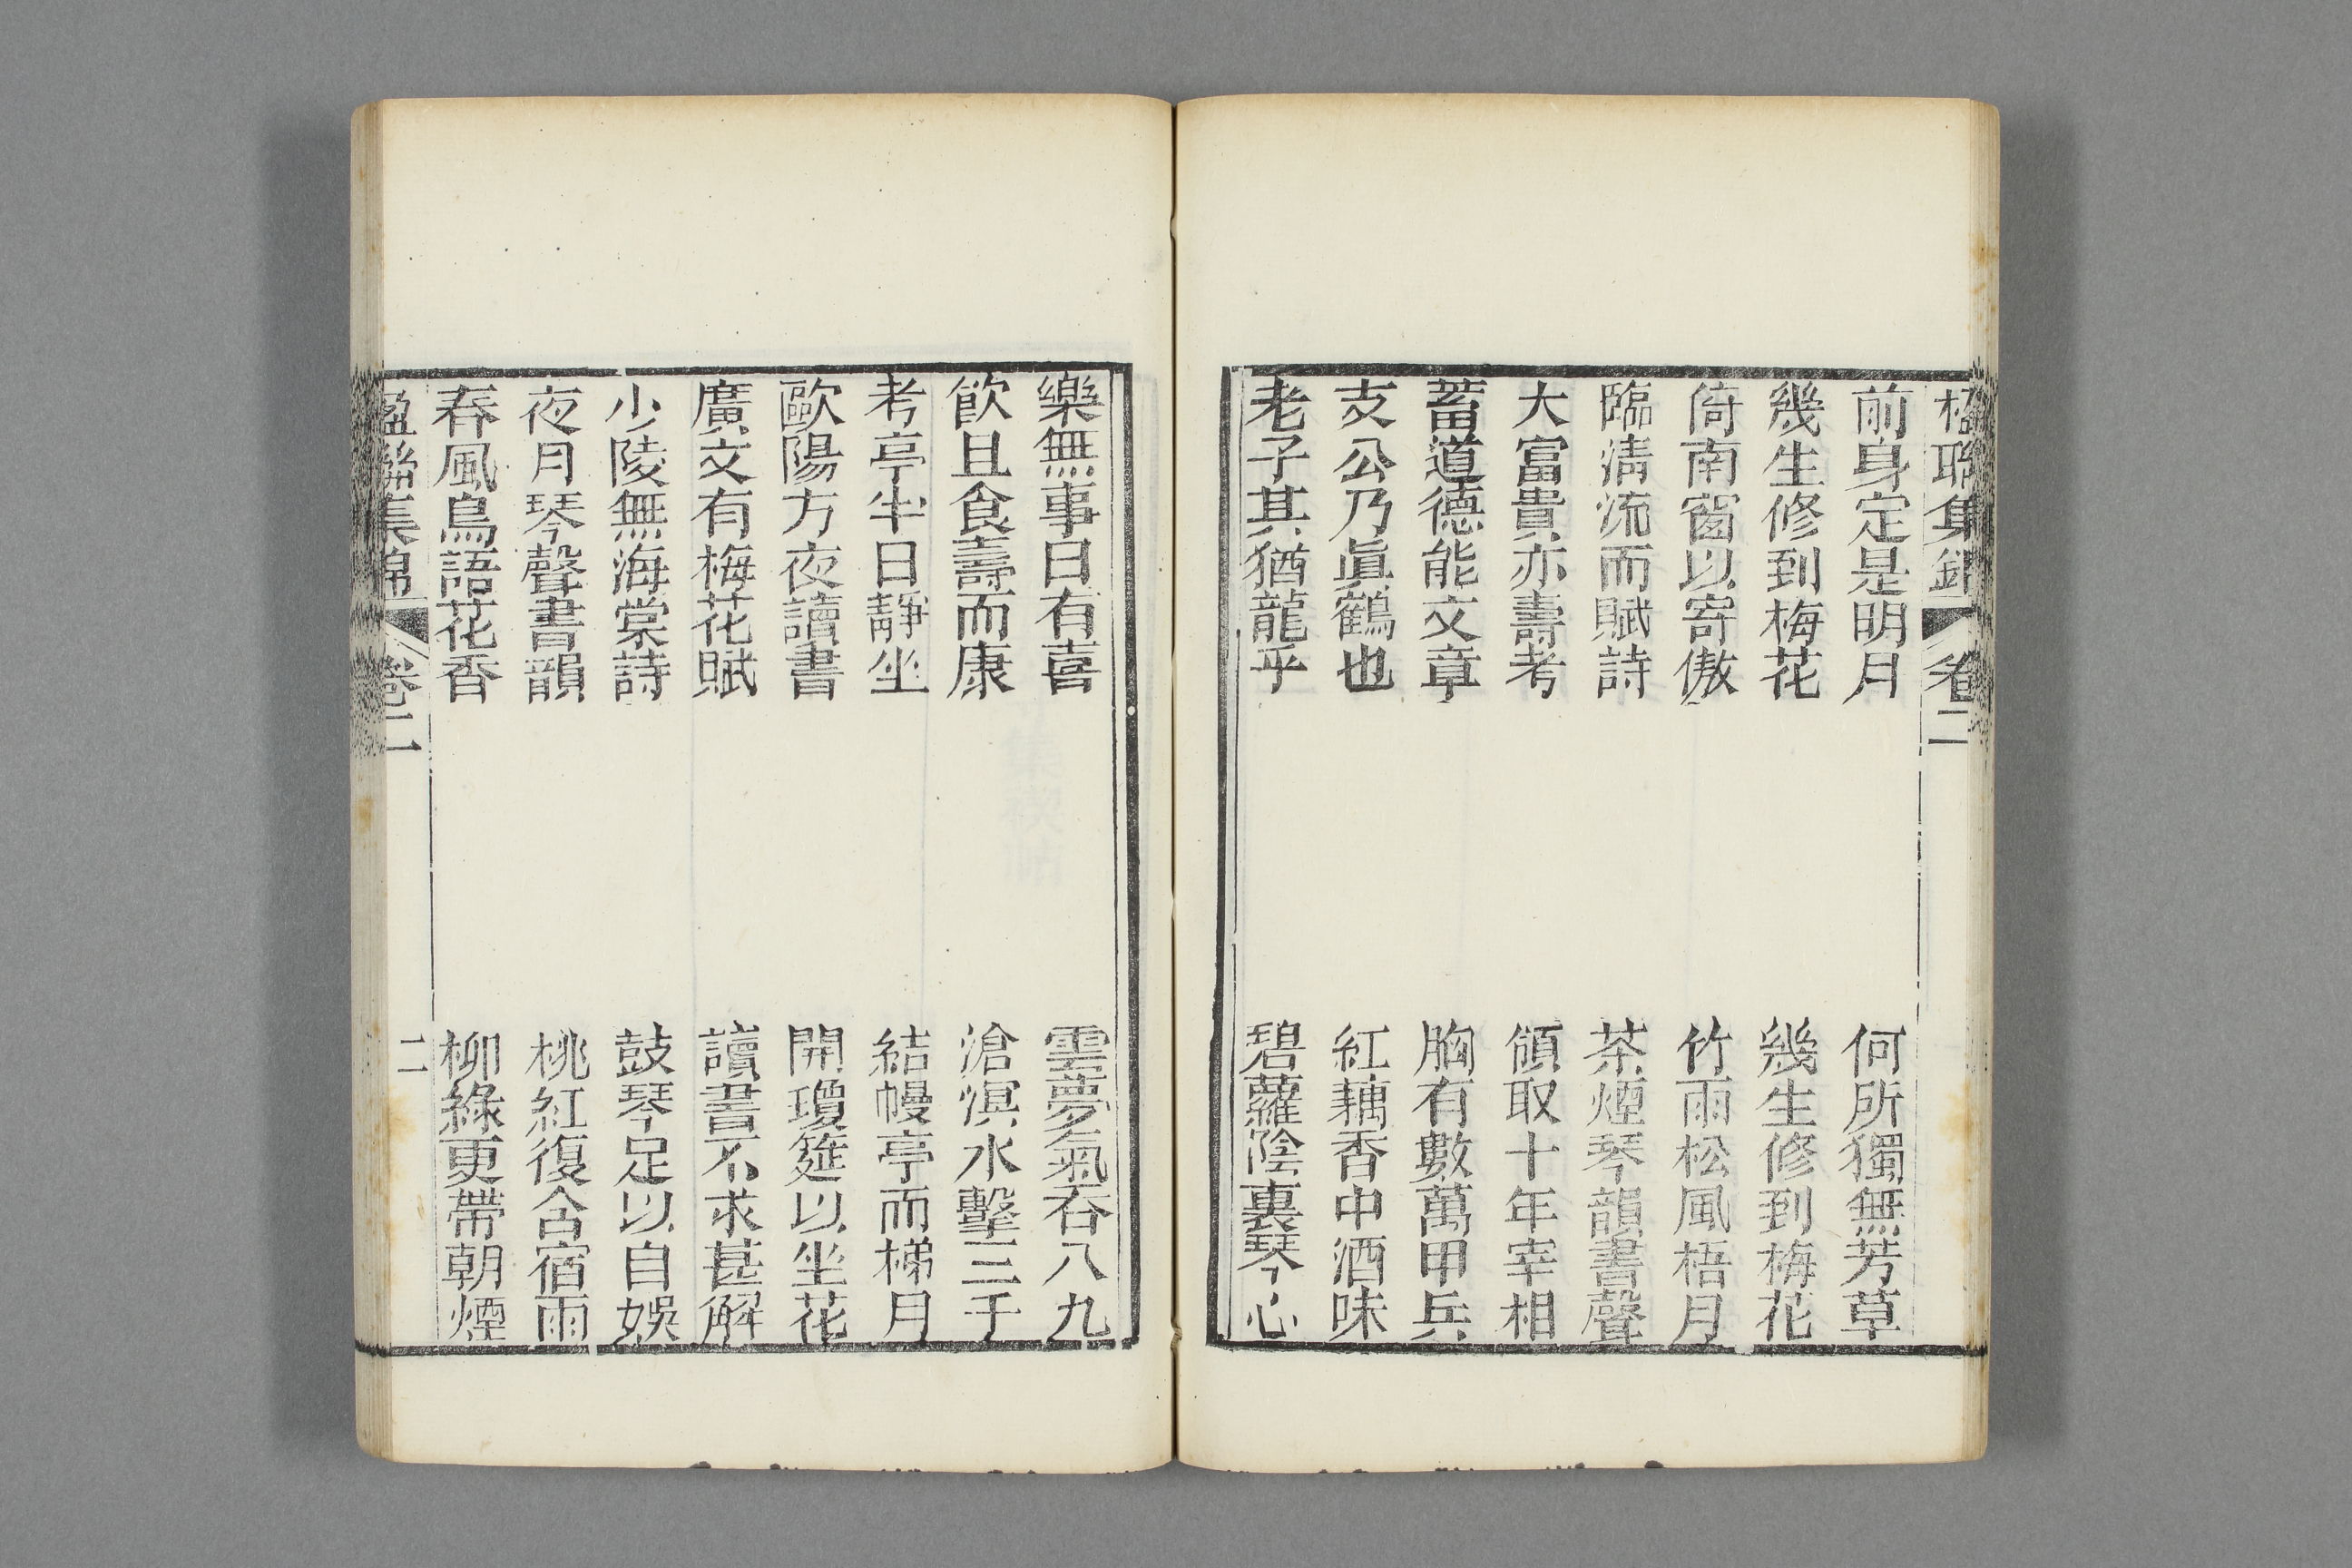 前身定是明月　何所獨無芳草
幾生修到梅花　幾生修到梅花
倚南窗以寄傲　竹雨松風梧月
臨淸流而賦詩　茶煙琴韻書聲
大富貴亦壽考　領取十年宰相
蓄道德能文章　胸有數萬甲兵
支公乃眞鶴也　紅藕香中酒味
老子其猶龍乎　碧蘿陰裏琴心
樂無事日有喜　雲夢氣吞八九
飮且食壽而康　滄溟水擊三千
考亭半日靜坐　結幔亭而梯月
歐陽方夜讀書　開瓊筵以坐花
廣文有梅花賦　讀書不求甚解
少陵無海棠詩　鼓琴足以自娛
夜月琴聲書韻　桃紅復含宿雨
春風鳥語花香　柳綠更帶朝煙
楹聯集錦　卷二　二